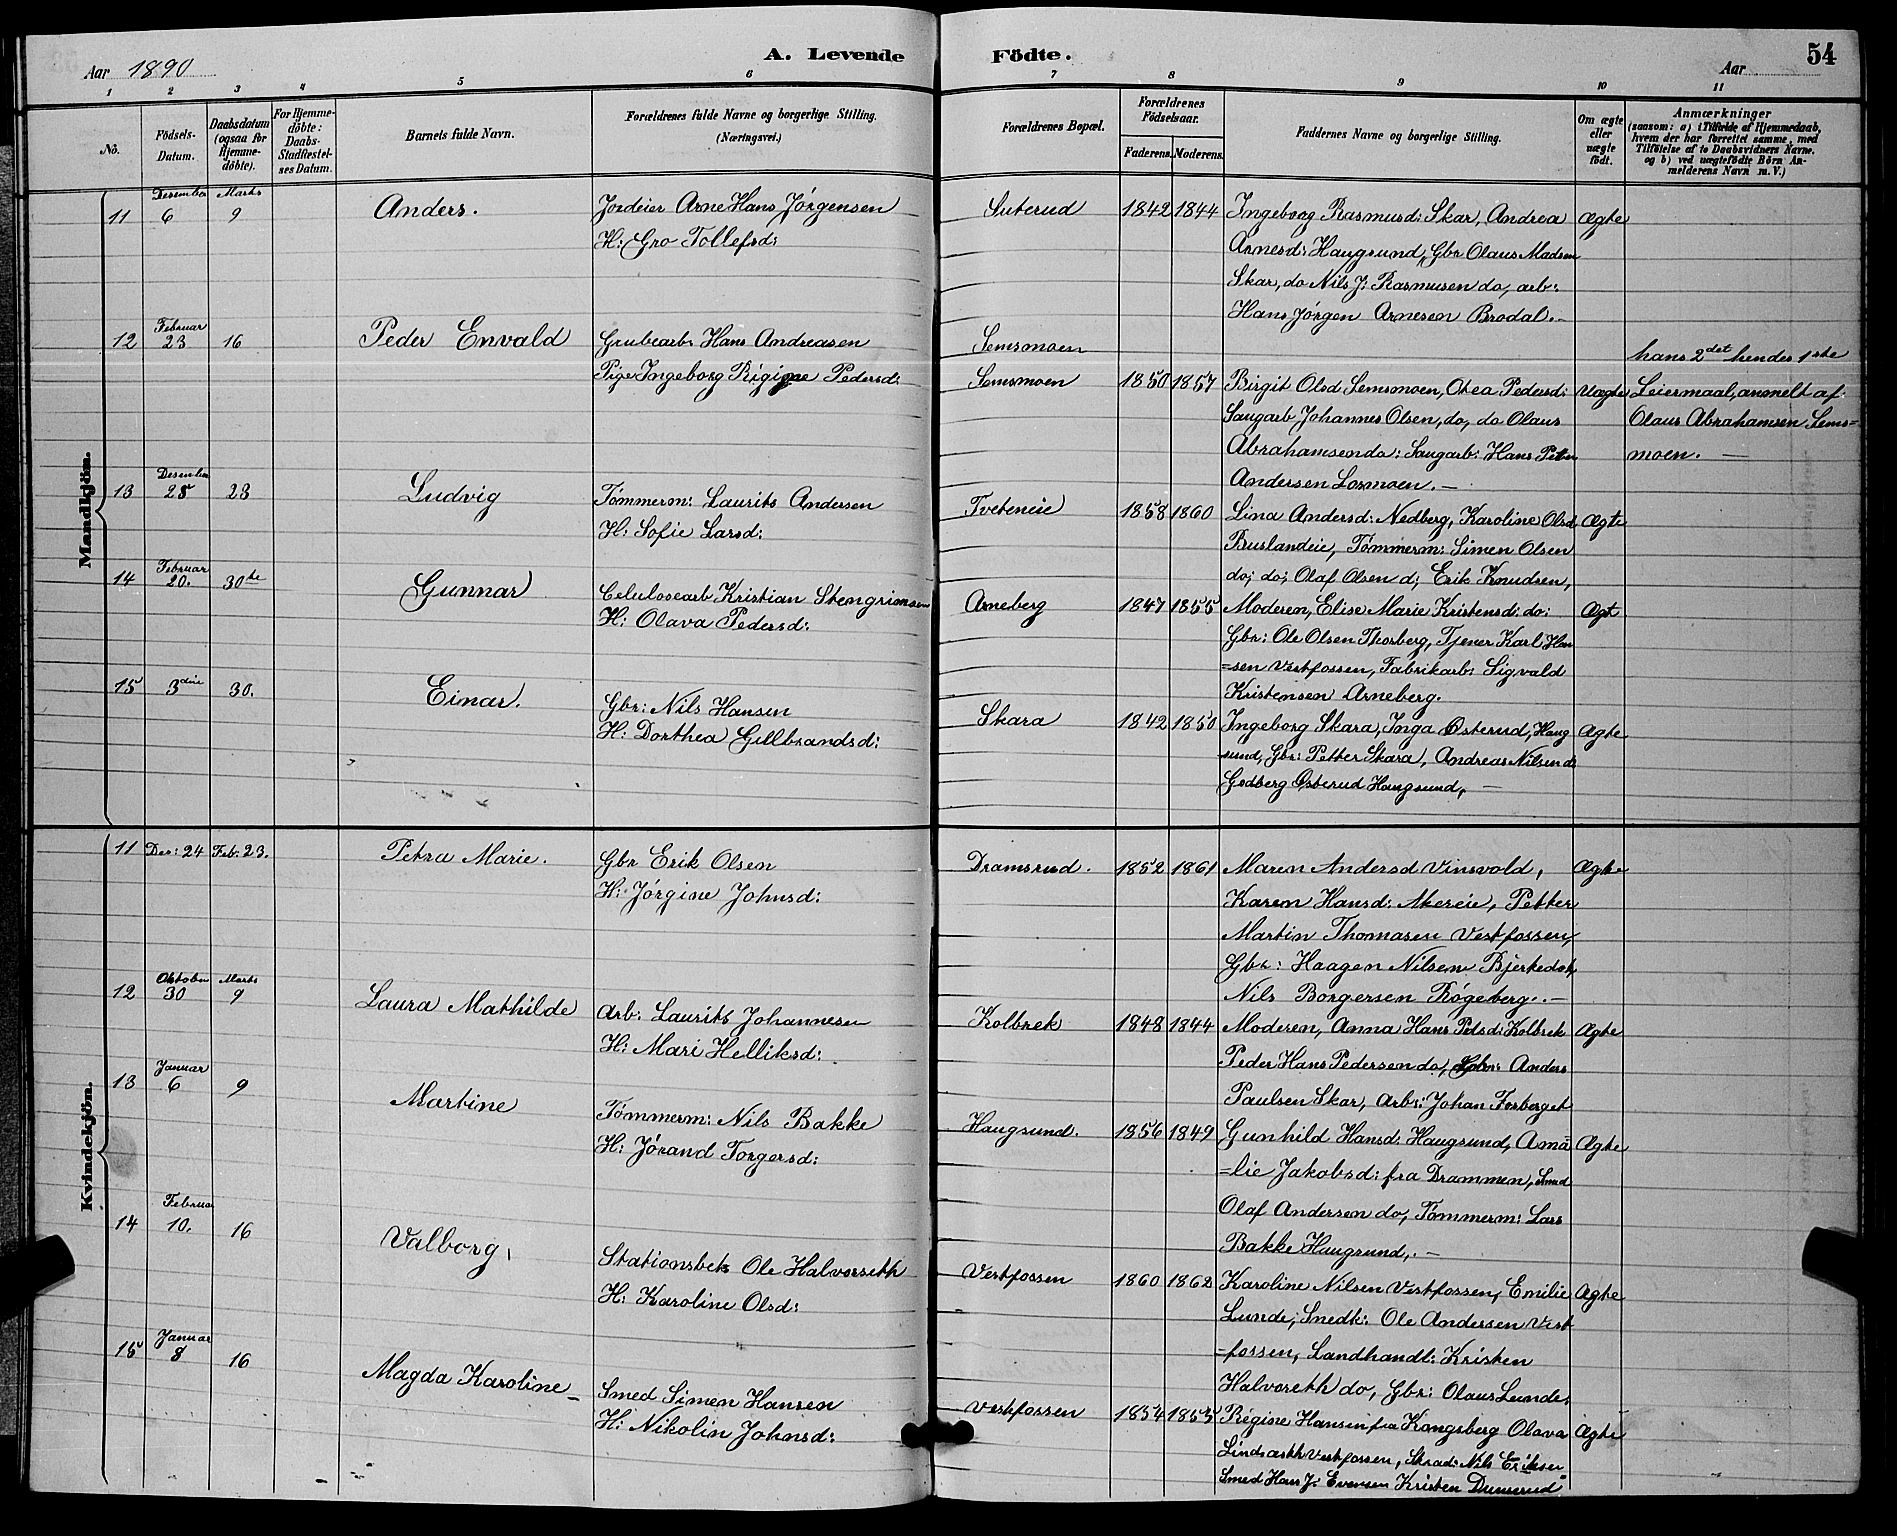 Aar 1890
A. Levende Födte.
Aar
54
1 2 3 4 5 6 7 8 9 10 11
No.
Födsels-Datum.
Daabsdatum (ogsaa for Hjemme-döbte).
For Hjemme-döbte: Daabs-Stadfæstel-ses Datum.
Barnets fulde Navn.
Forældrenes fulde Navne og borgerlige Stilling. (Næringsvei.)
Forældrenes Bopæl.
Forældrenes Födselsaar.
Faderens. Moderens.
Faddernes Navne og borgerlige Stilling.
Om ægte eller uægte födt.
Anmærkninger
(saasom: a) i Tilfælde af Hjemmedaab, hvem der har forrettet samme, med Tilföielse af to Daabsvidners Navne. og b) ved uægtefödte Börn An-melderens Navn m. V.)
Mandkjön.
11 Desember 6 Marts 9 Anders. Jordeier Arne Hans Jörgensen
H: Gro Tollefsd:
Suterud 1842 1844 Ingeborg Rasmusd: Skar, Andrea Ægte
Arnesd: Haugsund, Gbr Olaus Madsen
Skar, do Nils J: Rasmusen do, arb:
Hans Jörgen Arnesen Brodal.-
12 Februar 23 16 Peder Envald Grubearb Hans Andreasen Semsmoen
Pige Ingeborg Rigine Pedersd: Semsmoen 1850 1857
Birgit Olsd Semsmoen, Otea Pedersd: Uægte
Saugarb Johannes Olsen, do, do Olaus
Abrahamsen do: Saugarb: Hans Peter
Andersen Losmoen.-
hans 2det hendes 1ste
Leiermaal, anmelt af
Olaus Abrahamsen Sems=
moen. -
13 Desember 25 23 Ludvig Tömmerm: Laurits Andersen
H: Sofie Larsd:
Tveteneie 1858 1860 Lina Andersd: Nedberg, Karoline Olsd Ægte
Buslandeie, Tömmerm: Simen Olsen
do; do; Olaf Olsen d; Erik Knudsen,
14 Februar 20. 30te Gunnar Celulosearb Kristian Stengrimsen
H: Olava Pedersd:
Arneberg 1847 1855 Moderen, Elise Marie Kristensd: do: Ægt
Gbr: Ole Olsen Thorberg, Tjener Karl Han
=sen Vestfossen, Fabrikarb: Sigvald
Kristensen Arneberg.
15 3die 30. Einar. Gbr: Nils Hansen
H: Dorthea Gulbrandsd:
Skara 1842 1850 Ingeborg Skara, Inga Østerud, Haug Ægte
sund, Gbr: Petter Skara, Andreas Nilsen d:
Godberg Østerud Haugsund, -
Kvindekjön.
11 Des: 24 Feb. 23. Petra Marie. Gbr Erik Olsen
H: Jörgine Johnsd:
Dramsrud. 1852 1861 Maren Andersd Vinsvold, Ægte
Karen Hansd: Akereie, Petter
Martin Thomasen Vestfossen,
Gbr: Haagen Nilsen Bjerkedok,
Nils Borgersen Rögeberg.-
12 Oktober 30 Marts 9 Laura Mathilde Arb: Laurits Johannesen
H: Mari Helliksd:
Kolbrek 1848 1844 Moderen, Anna Hans Pedsd: Kolbrek Ægte
Peder Hans Pedersen do, Gbr: Anders
Paulsen Skar, Arb: Johan Forberget
13 Januar 6 9 Martine Tömmerm: Nils Bakke
H: Jörand Torgersd:
Haugsund. 1856 1849 Gunhild Hansd: Haugsund, Ama Ægte
=lie Jakobsd: fra Drammen, Smed
Olaf Andersen do, Tömmerm: Lars
Bakke Haugsund,.-
14 Februar 10. 16 Valborg, Stationsbet Ole Halvorseth
H: Karoline Olsd:
Vestfossen 1860 1862 Karoline Nilsen Vestfossen, Emilie Ægte
Lunde, Snedk: Ole Andersen Vest
=fossen, Landhandl: Kristen
Halvorseth do, Gbr: Olaus Lunde,
15 Januar 8 16 Magda Karoline Smed Simen Hansen
H: Nikolin Johnsd:
Vestfossen 1854 1855 Regine Hansen fra Kongsberg Olava Ægte
Vestfossen, Skrad: Nils Eriksen
Smed Hans J. Evensen Kristen Dunserud